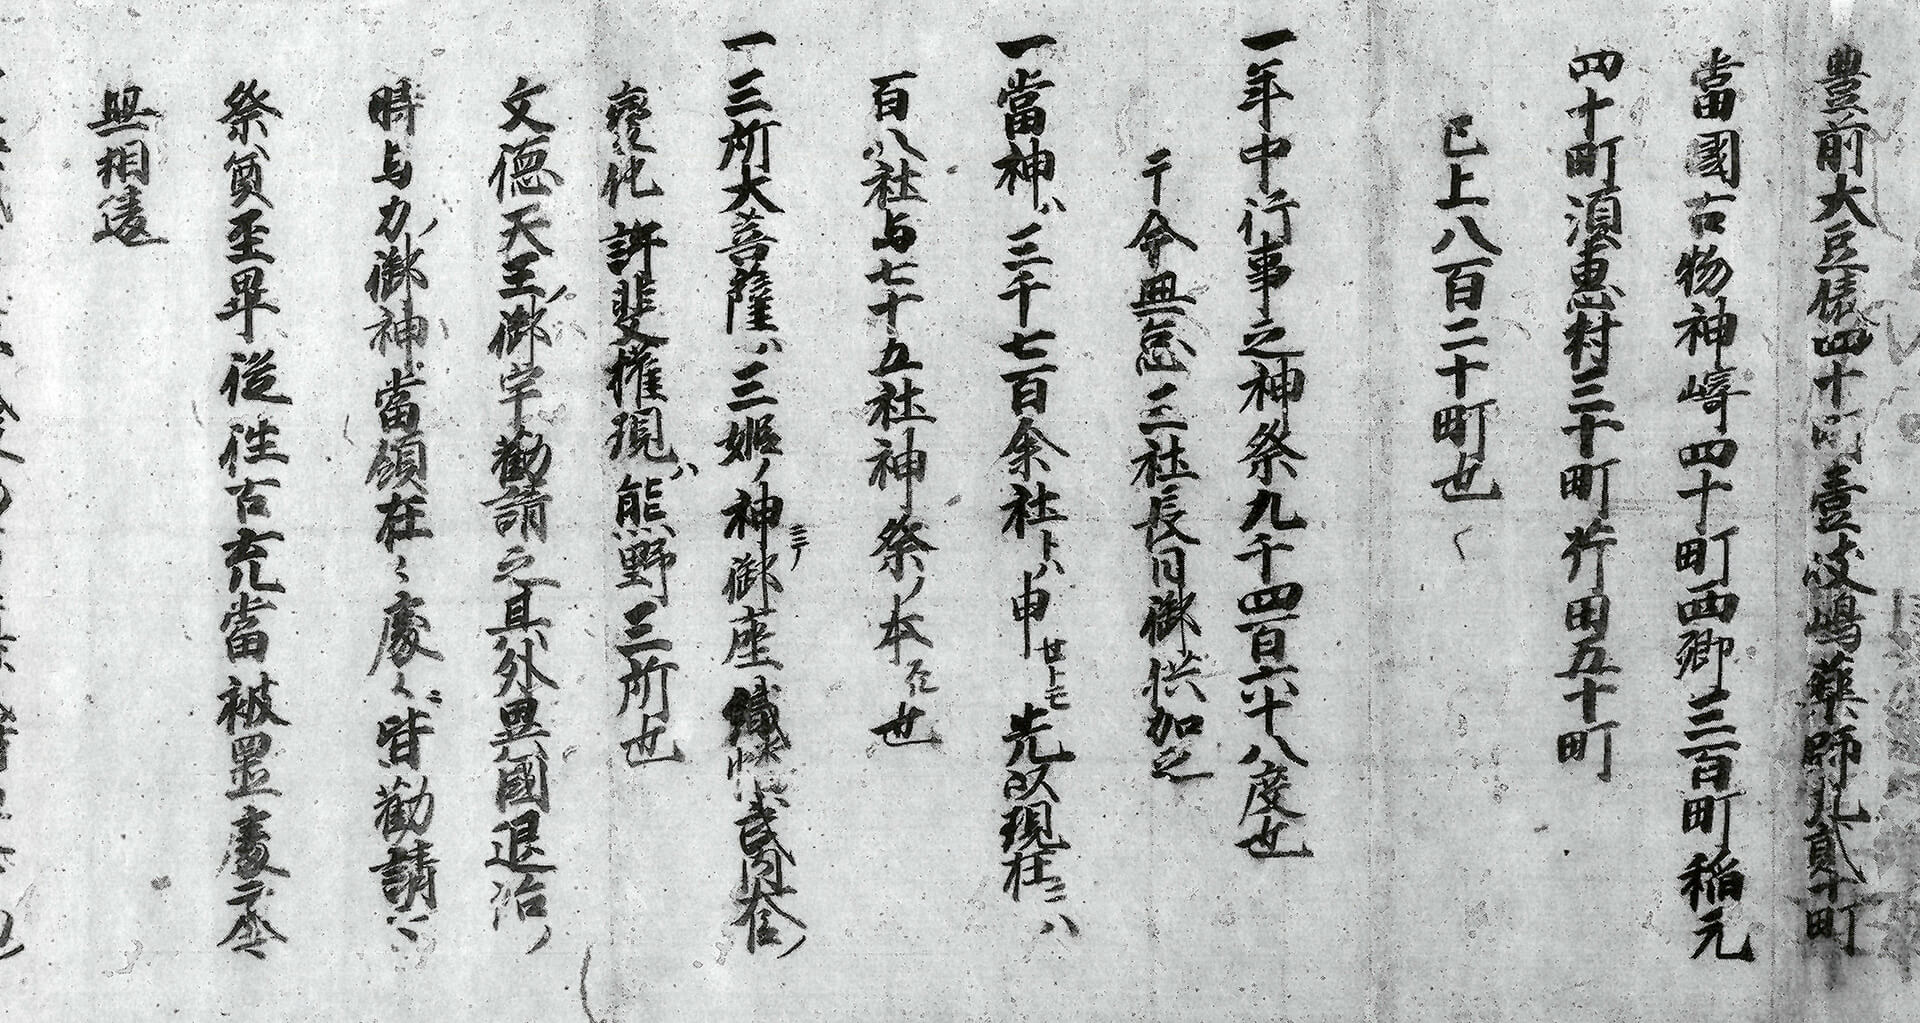 豊前大豆俵四十町壹岐嶋薬師丸貳十町
當國古物神崎四十町西郷三百町稲元
四十町須惠村三十町竹田五十町
已上八百二十町也
一年中行事之神祭九千四百六十八度也
于今無怠三社長日御供加之
一當神ハ三千七百余社トハ申せトモ先以現在ニハ
百八社与七十五社神祭ノ本也
一三所大菩薩ハ三姫ノ神御座
變化許斐権現ハ熊野三所也
文徳天王ノ御宇勧請之其外異國退治ノ
時与力ノ御神當領在々處々ニ皆勧請
祭奠至畢従往古充當被置處于今
無相違